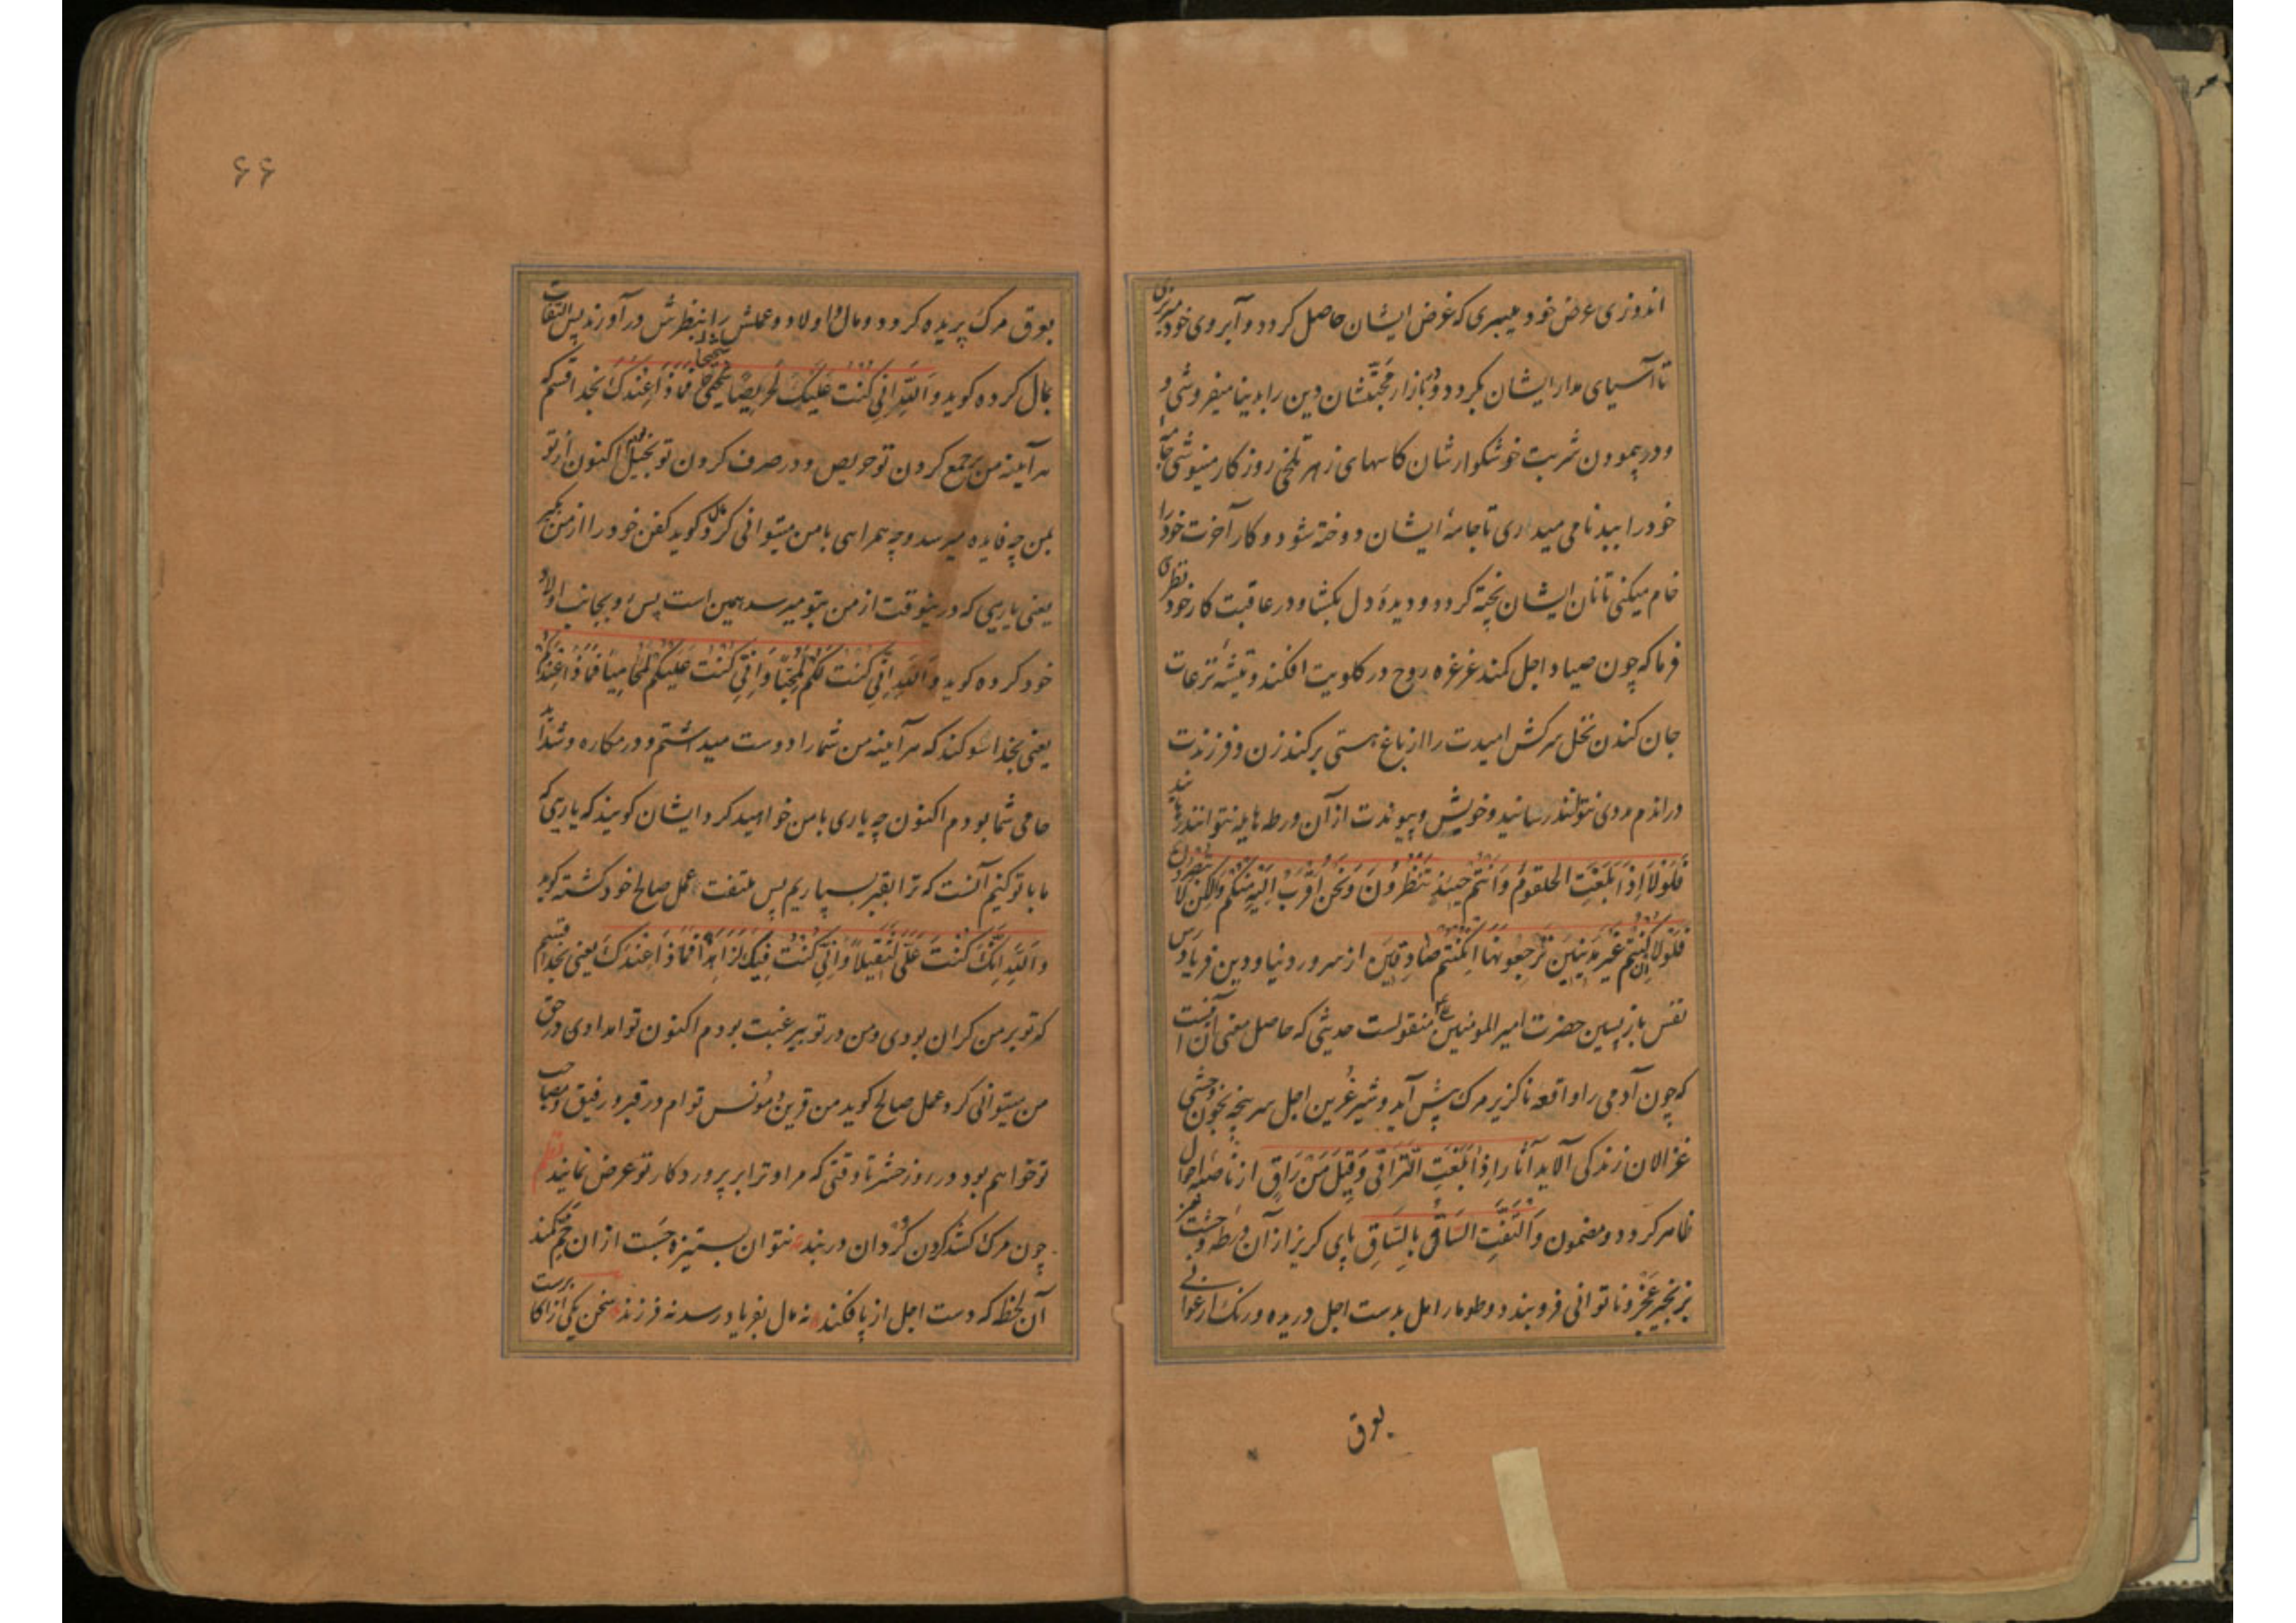 اندوزی عرض خود میبری که غرض ایشان حاصل کردد و آبروی خود میریزی
تا آسیای مدار ایشان بکردد و ببازار محبتشان دین را بدینا میفروشی و
و در پیمودن شربت خوشکوارشان کاسهای زهر تلخی روزکار مینوشی جامهٔ
خود را ببدنامی میداری تا جامهٔ ایشان دوخته شود و کار آخرت خود را
خام میکنی تا نان ایشان پخته کردد و دیدهٔ دل بکشا و در عاقبت کار خود نظری
فرما که چون صیاد اجل کمند غرغره روح در کلویت افکند و تیشهٔ نزعات
جان کندن نخل سرکش امیدت را از باغ هستی برکند زن و فرزندت
در اندم مددی نتوانند رسانید و خویش و پیوندت از آن ورطه هایله نتوانند رهانید
فَلَوْلَا اِذَا بَلَغَتِ الحلقوم وَاَنْتُمْ حِینَئِذٍ تَنْظُرُونَ وَنَحْنُ اَقْرَبُ اِلَیْهِ مِنْکُمْ وَلٰکِنْ لَا تُبْصِرُونَ
فَلَوْلَا اِنْ کُنْتُمْ غَیْرَ مَدِینِینَ تَرْجِعُونَهَا اِنْ کُنْتُمْ صَادِقِینَ از سرور دنیا و دین فریادرس
نفس بازپسین حضرت امیر المومنین ع منقولست حدیثی که حاصل معنی آن اینست
که چون آدمی را واقعه ناکزیر مرک پیش آید و شیر غرین اجل سرپنجه بخون وحشی
غزالان زندکی آلاید آثار اِذَا بَلَغَتِ التَّرَاقِی وَقِیلَ مَنْ رَاقٍ از ناصیهٔ احوال
ظاهر کردد و مضمون وَالْتَفَّتِ السَّاقُ بِالسَّاقِ پای کریز از آن ورطهٔ وحشت خیز
بزنجیر عجز و ناتوانی فروبندد و طومار امل بدست اجل دریده و رنک ارغوانی
بوق
بوق مرک پریده کردد و مال و اولاد و عملش را بنظرش در آورند پس التفات
بمال کرده کوید وَاللّٰهِ اِنِّی کُنْتُ عَلَیْکَ لَحَرِیصًا شَحِیحًا فَمَا ذَا عِنْدَکَ بخدا قسم که
هر آینه من بر جمع کردن تو حریص و در صرف کردن تو بخیل بودم اکنون از تو
بمن چه فایده میرسد و چه همراهی با من میتوانی کرد مال کوید کفن خود را از من بکیر
یعنی یاریی که درینوقت از من بتو میرسد همین است پس رو بجانب اولاد
خود کرده کوید وَاللّٰهِ اِنِّی کُنْتُ لَکُمْ لَمُحِبًّا وَاِنِّی کُنْتُ عَلَیْکُمْ لَمُحَامِیًا فَمَا ذَا عِنْدَکُمْ
یعنی بخدا سوکند که هر آینه من شما را دوست میداشتم و در مکاره و شداید
حامی شما بودم اکنون چه یاری با من خواهید کرد ایشان کویند که یاریی که
ما با تو کنیم آنست که ترا بقبر بسپاریم پس ملتفت عمل صالح خود کشته کوید
وَاللّٰهِ اِنَّکَ کُنْتَ عَلَیَّ لَثَقِیلًا وَاِنِّی کُنْتُ فِیکَ لَزَاهِدًا فَمَا ذَا عِنْدَکَ یعنی بخدا قسم
که تو بر من کران بودی و من در تو بیرغبت بودم اکنون تو امدادی در حق
من میتوانی کرد عمل صالح کوید من قرین و مونس توام در قبر و رفیق و مصاحب
تو خواهم بود در روز حشر تا وقتی که مرا و ترا بر پروردکار تو عرض نمایند نظم
چون مرک کشد کردن کردان در بند نتوان بستیزه جست از ان خم کمند
آن لحظه که دست اجل از پا فکند نه مال بفریاد رسد نه فرزند سخن یکی از اکابرست
۶۶